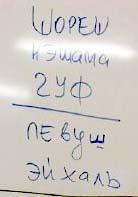 ШОРЕШ
НЭШАМА
ГУФ
ЛЕВУШ
ЭЙХАЛЬ